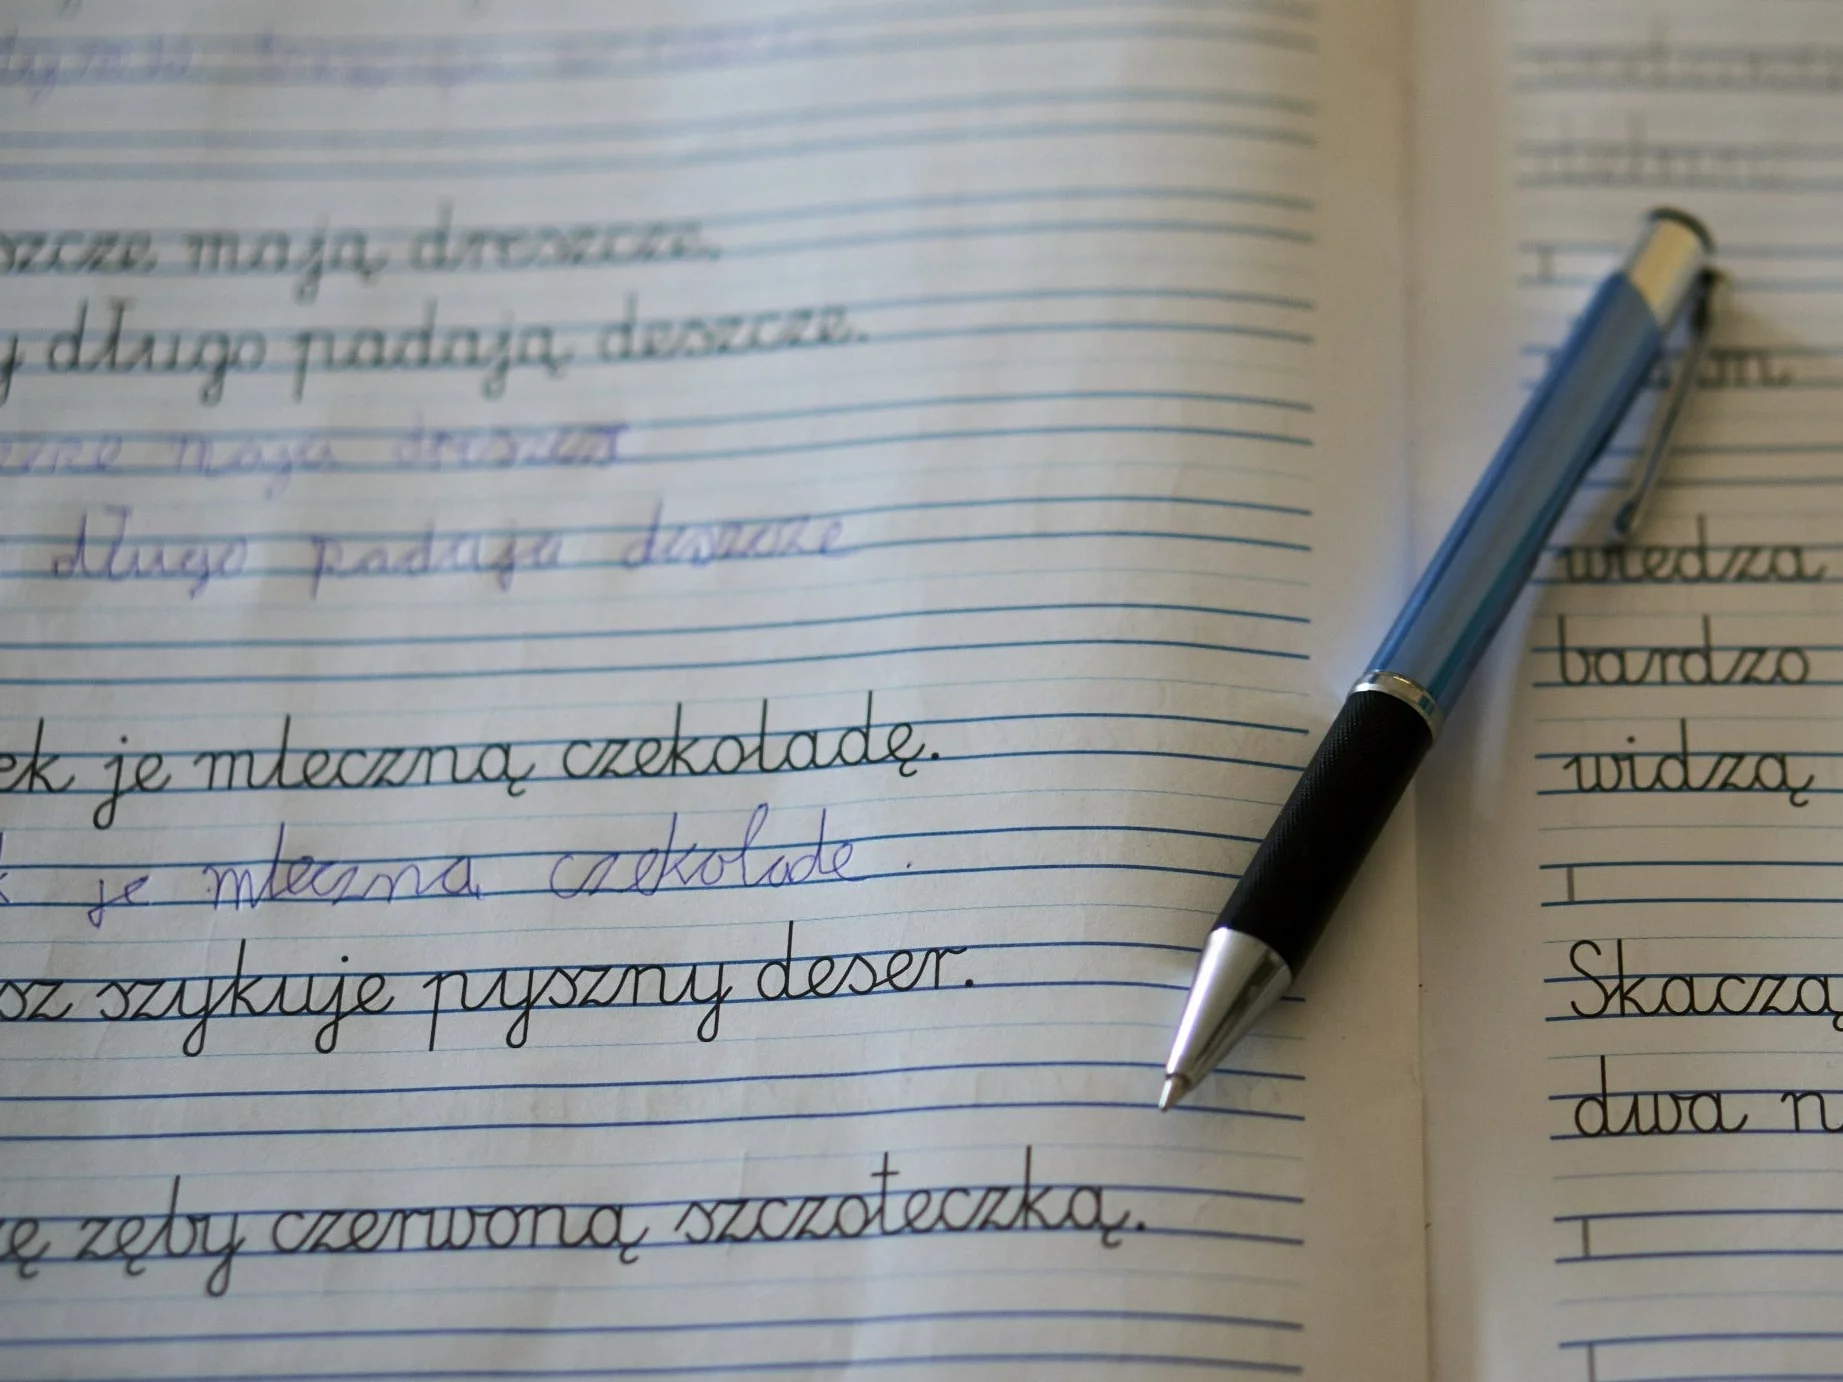 szcze mają dreszcze.
y długo padają deszcze.
maja
długo padaja deszcze
ek je mleczną czekoladę.
k je mleczna czekolade.
sz szykuje pyszny deser.
ę zęby czerwoną szczoteczką.
wiedza
bardzo
widzą
Skaczą
dwa n